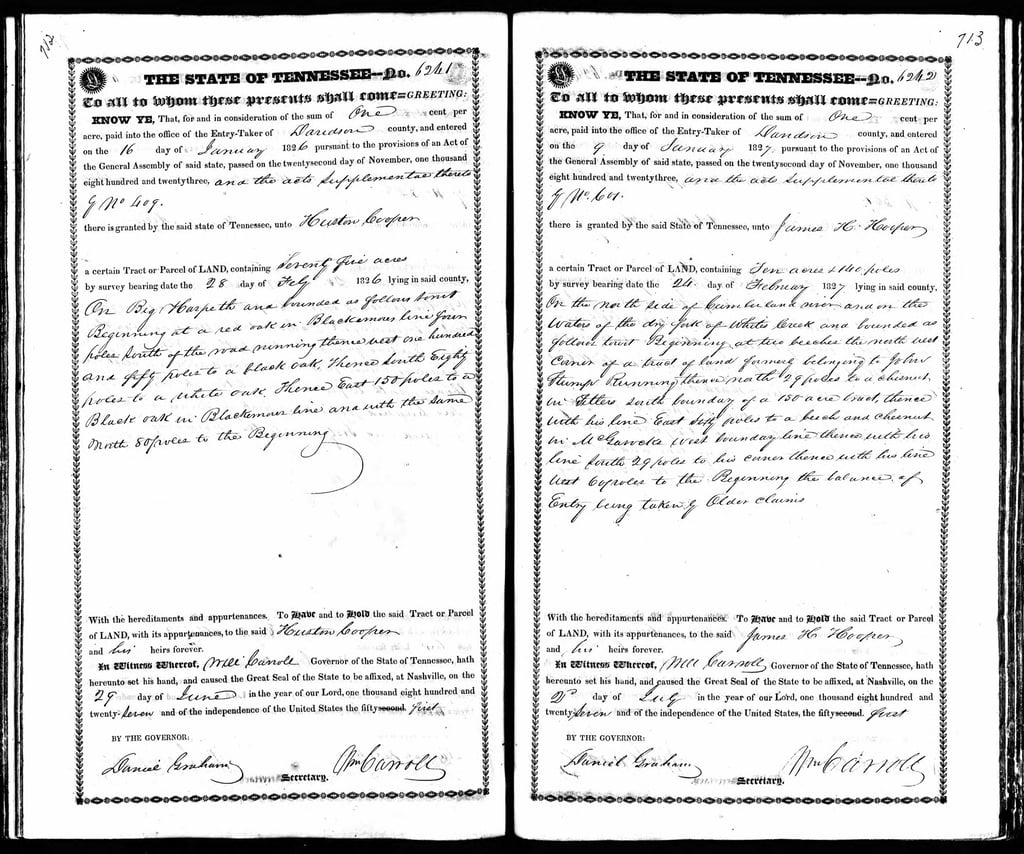 712
THE STATE OF TENNESSEE--No. 6241
To all to whom these presents shall come=GREETING:
KNOW YE, That, for and in consideration of the sum of One cent per
acre, paid into the office of the Entry-Taker of Davidson county, and entered
on the 16 day of January 1826 pursuant to the provisions of an Act of
the General Assembly of said state, passed on the twentysecond day of November, one thousand
eight hundred and twentythree, and the acts Supplemental thereto
by No 409.
there is granted by the said state of Tennessee, unto Huston Cooper
a certain Tract or Parcel of LAND, containing Seventy five acres
by survey bearing date the 28 day of Feby 1826 lying in said county,
On Big Harpeth and bounded as follows towit
Beginning at a red oak in Blackemores line four
poles South of the road running thence west one hundred
and fifty poles to a black oak, Thence South Eighty
poles to a white oak. Thence East 150 poles to a
Black oak in Blackemores line and with the same
North 80 poles to the Beginning
With the hereditaments and appurtenances. To Have and to Hold the said Tract or Parcel
of LAND, with its appurtenances, to the said Huston Cooper
and his heirs forever.
In Witness Whereof, Will Carroll Governor of the State of Tennessee, hath
hereunto set his hand, and caused the Great Seal of the State to be affixed, at Nashville, on the
29 day of June in the year of our Lord, one thousand eight hundred and
twenty-seven and of the independence of the United States the fiftysecond. first
BY THE GOVERNOR:
Daniel Graham Wm Carroll
Secretary.
713
THE STATE OF TENNESSEE--No. 6242
To all to whom these presents shall come=GREETING:
KNOW YE, That, for and in consideration of the sum of One cent per
acre, paid into the office of the Entry-Taker of Davidson county, and entered
on the 9 day of January 1827. pursuant to the provisions of an Act of
the General Assembly of said state, passed on the twentysecond day of November, one thousand
eight hundred and twentythree, and the acts Supplemental thereto
by No. 601.
there is granted by the said State of Tennessee, unto James H. Hooper
a certain Tract or Parcel of LAND, containing Ten acres & 140 poles
by survey bearing date the 24 day of February 1827 lying in said county.
On the north side of Cumberland river and on the
Waters of the dry fork of Whites Creek and bounded as
follows towit Beginning at two beeches the north west
Corner of a tract of land formerly belonging to John
Stump Running thence north 29 poles to a chesnut
in south boundary of a 150 acre tract, thence
with his line East Sixty poles to a beech and chesnut
in west boundary line thence with his
line South 29 poles to his corner thence with his line
West 60 poles to the Beginning the balance of
Entry being taken by Older claims
With the hereditaments and appurtenances. To Have and to Hold the said Tract or Parcel
of LAND, with its appurtenances, to the said James H. Hooper
and his heirs forever.
In Witness Whereof, Will Carroll Governor of the State of Tennessee, hath
hereunto set his hand, and caused the Great Seal of the State to be affixed, at Nashville, on the
2d day of July in the year of our Lord, one thousand eight hundred and
twenty-seven and of the independence of the United States the fiftysecond. first
BY THE GOVERNOR:
Daniel Graham Wm Carroll
Secretary.